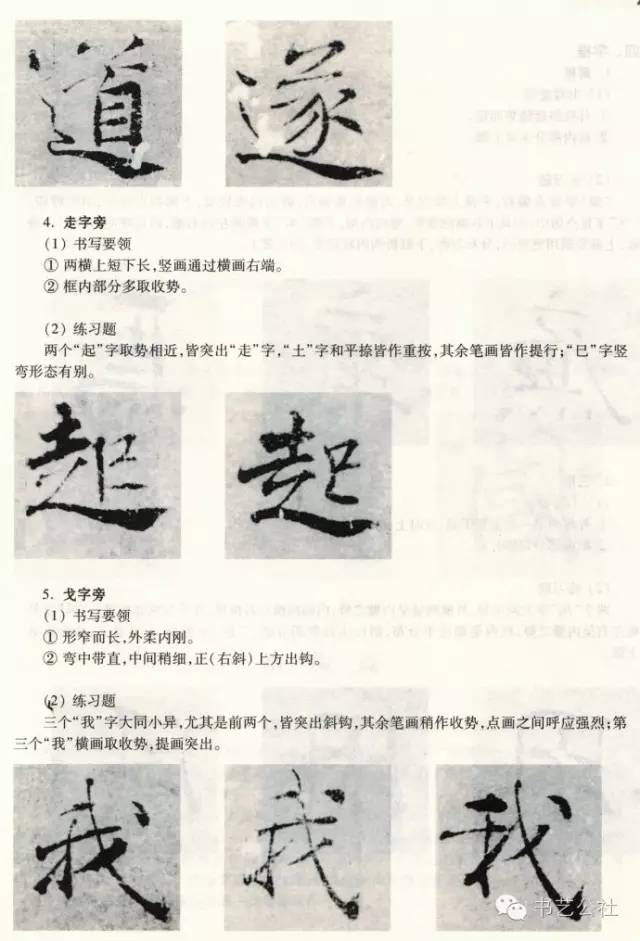 道 遂
4. 走字旁
(1) 书写要领
① 两横上短下长，竖画通过横画右端。
② 框内部分多取收势。
(2) 练习题
两个“起”字取势相近，皆突出“走”字，“土”字和平捺皆作重按，其余笔画皆作提行；“巳”字竖
弯形态有别。
起 起
5. 戈字旁
(1) 书写要领
① 形窄而长，外柔内刚。
② 弯中带直，中间稍细，正(右斜)上方出钩。
(2) 练习题
三个“我”字大同小异，尤其是前两个，皆突出斜钩，其余笔画稍作收势，点画之间呼应强烈；第
三个“我”横画取收势，提画突出。
我 我 我
书艺公社